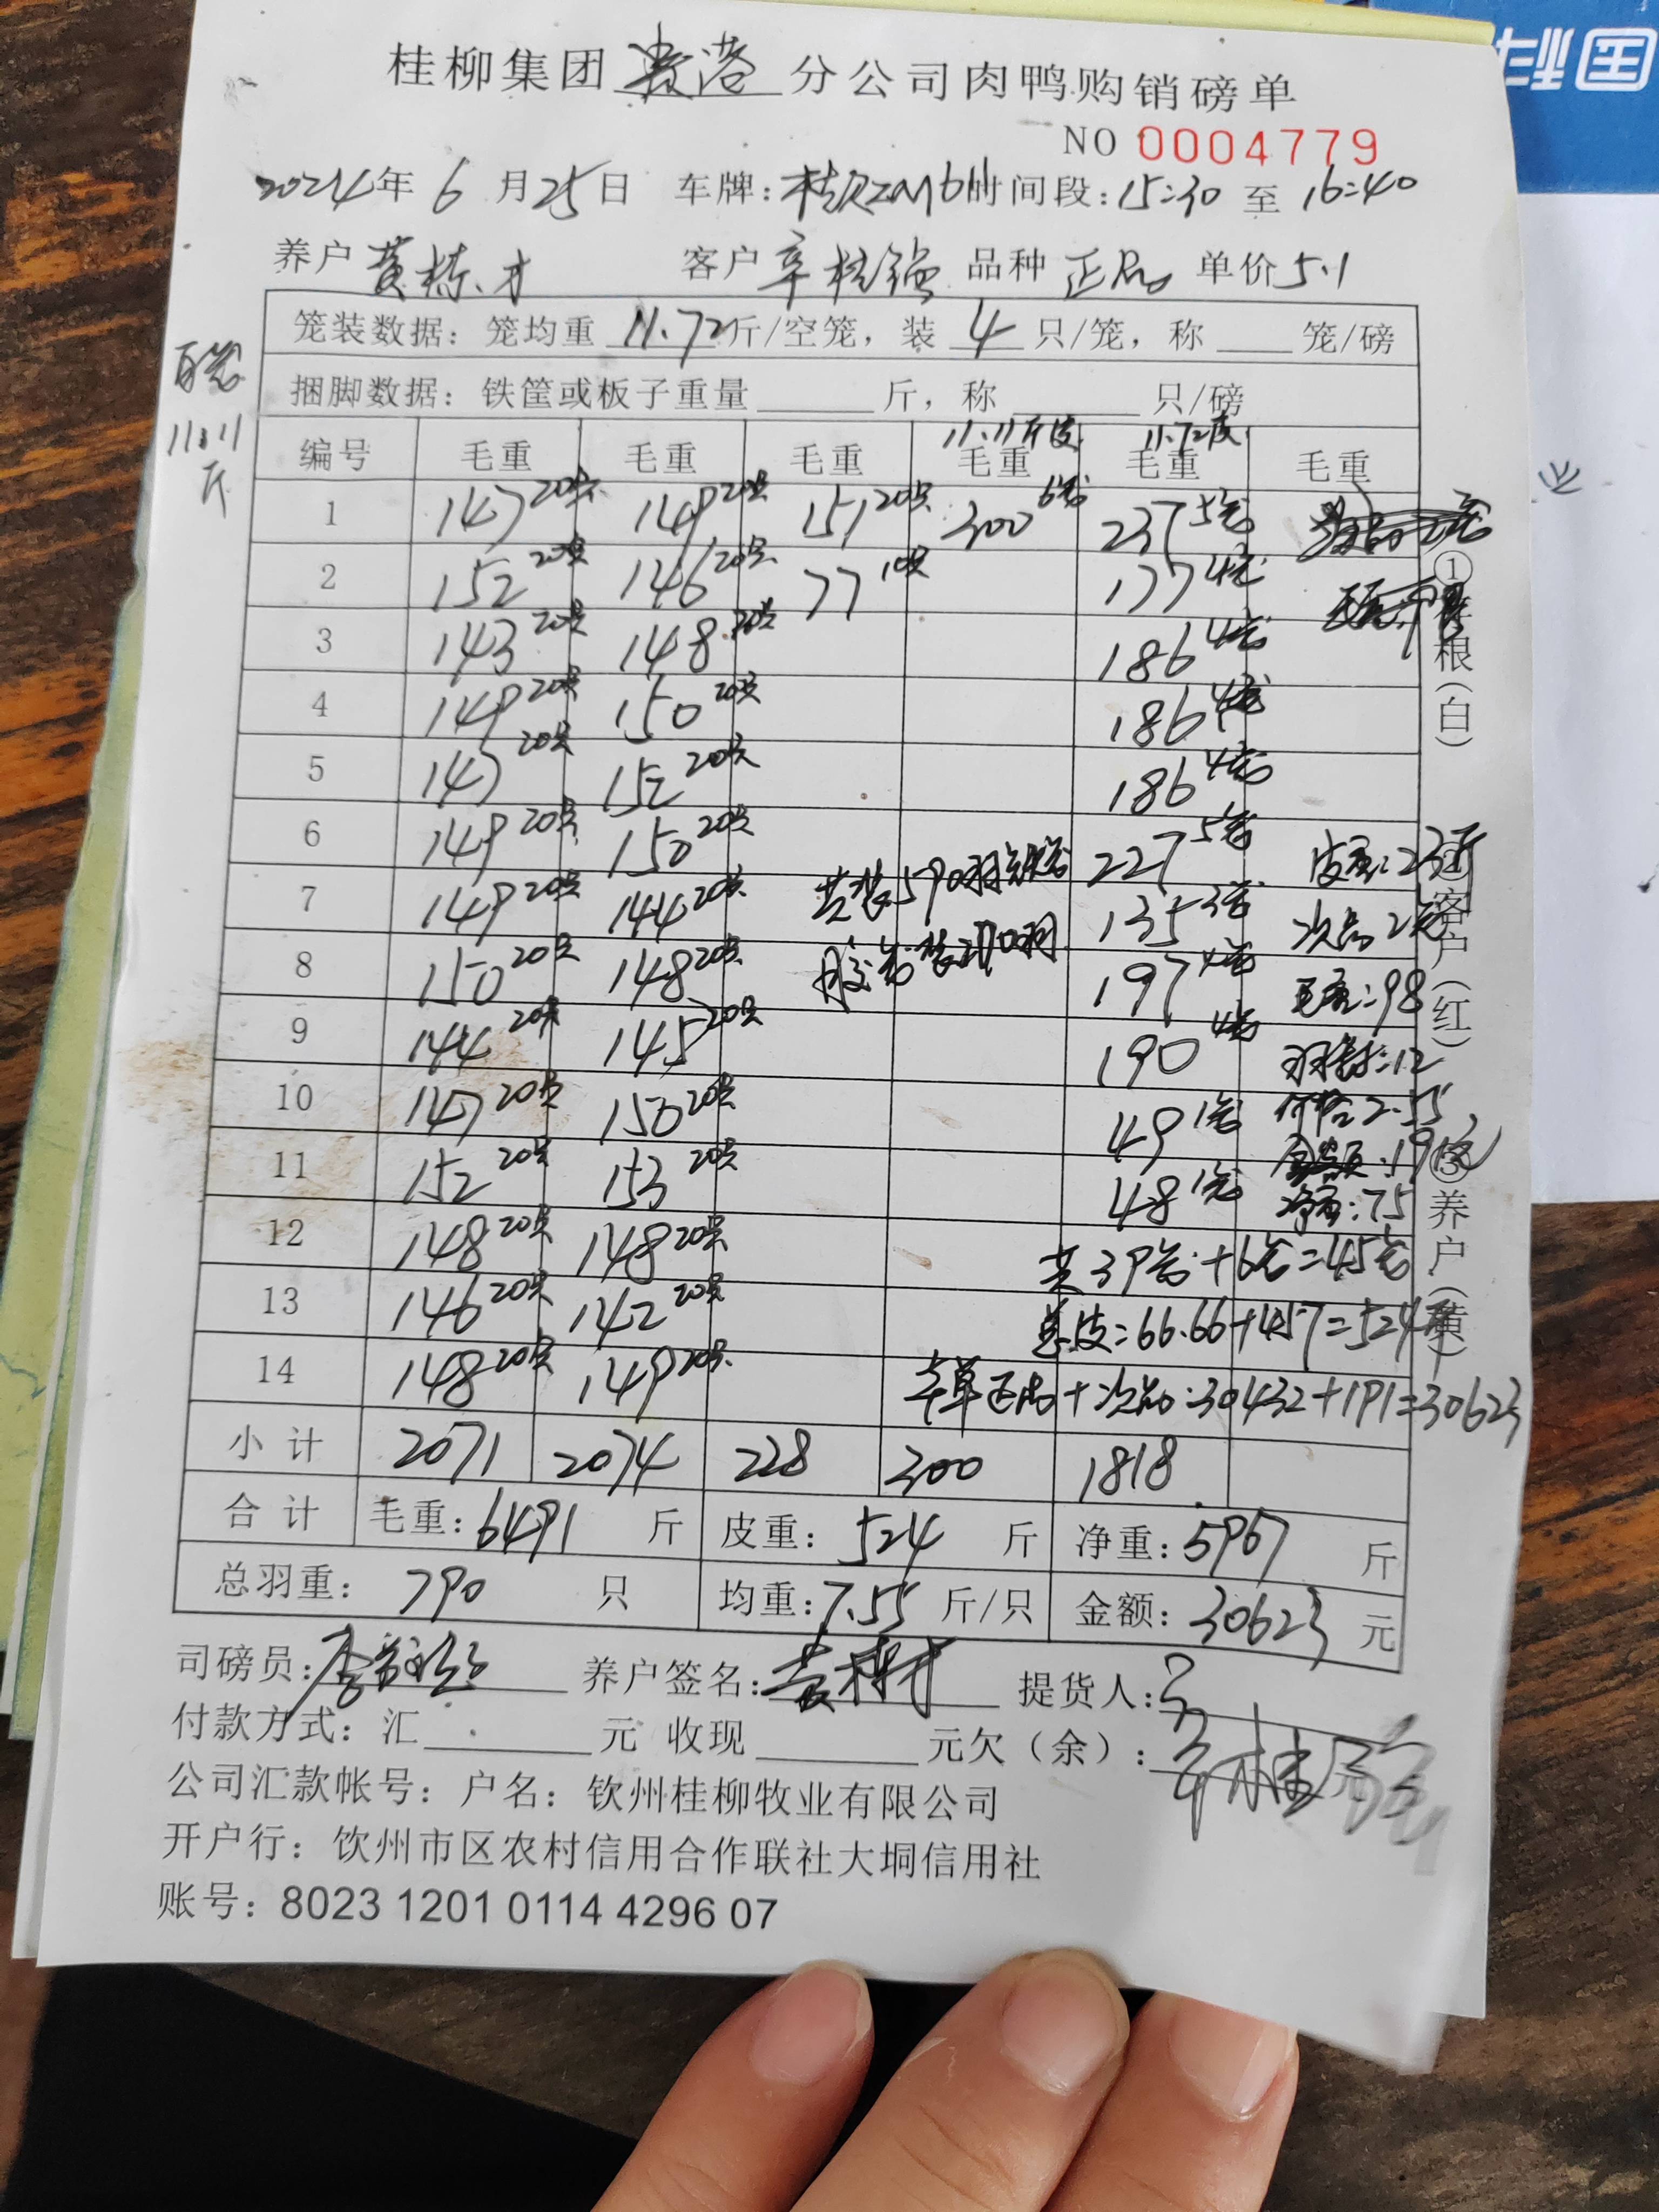 桂柳集团 贵港 分公司肉鸭购销磅单
NO 0004779
2024年 6 月 25 日 车牌: 时间段: 15:30 至 16:40
养户 黄栋才 客户 辛桂强 品种 正品 单价 5.1
笼装数据: 笼均重 11.72 斤/空笼, 装 4 只/笼, 称 笼/磅
捆脚数据: 铁筐或板子重量 斤, 称 只/磅
11.11
斤
11.11斤皮 11.72皮
编号 毛重 毛重 毛重 毛重 毛重 毛重
1 147 20只 149 20只 151 20只 300 6笼 237 5笼
2 152 20只 146 20只 77 10只 177 4笼
3 143 20只 148 20只 186 4笼
4 149 20只 150 20只 186 4笼
5 147 20只 152 20只 186 4笼
6 149 20只 150 20只 227 5笼 皮重:23斤
7 149 20只 144 20只 共装590羽铁笼 135 3笼 次品2笼
8 150 20只 148 20只 胶笼装200羽 197 4笼 毛重:98
9 144 20只 145 20只 190 4笼 羽数:12
10 147 20只 150 20只 49 1笼 价格2.55
11 152 20只 153 20只 48 1笼 金额:191元
净重:75
12 148 20只 148 20只 共39笼+6笼=45笼
13 146 20只 142 20只 总皮:66.66+457=524斤
14 148 20只 149 20只 本单正品+次品:30432+191=30623
小 计 2071 2074 228 300 1818
合 计 毛重: 6491 斤 皮重: 524 斤 净重: 5967 斤
总羽重: 790 只 均重: 7.55 斤/只 金额: 30623 元
司磅员: 养户签名: 黄栋才 提货人:
付款方式: 汇 元 收现 元欠(余):
辛桂强
公司汇款帐号: 户名: 钦州桂柳牧业有限公司
开户行: 饮州市区农村信用合作联社大垌信用社
账号: 8023 1201 0114 4296 07
根(白)
客户(红)
③养户(黄)